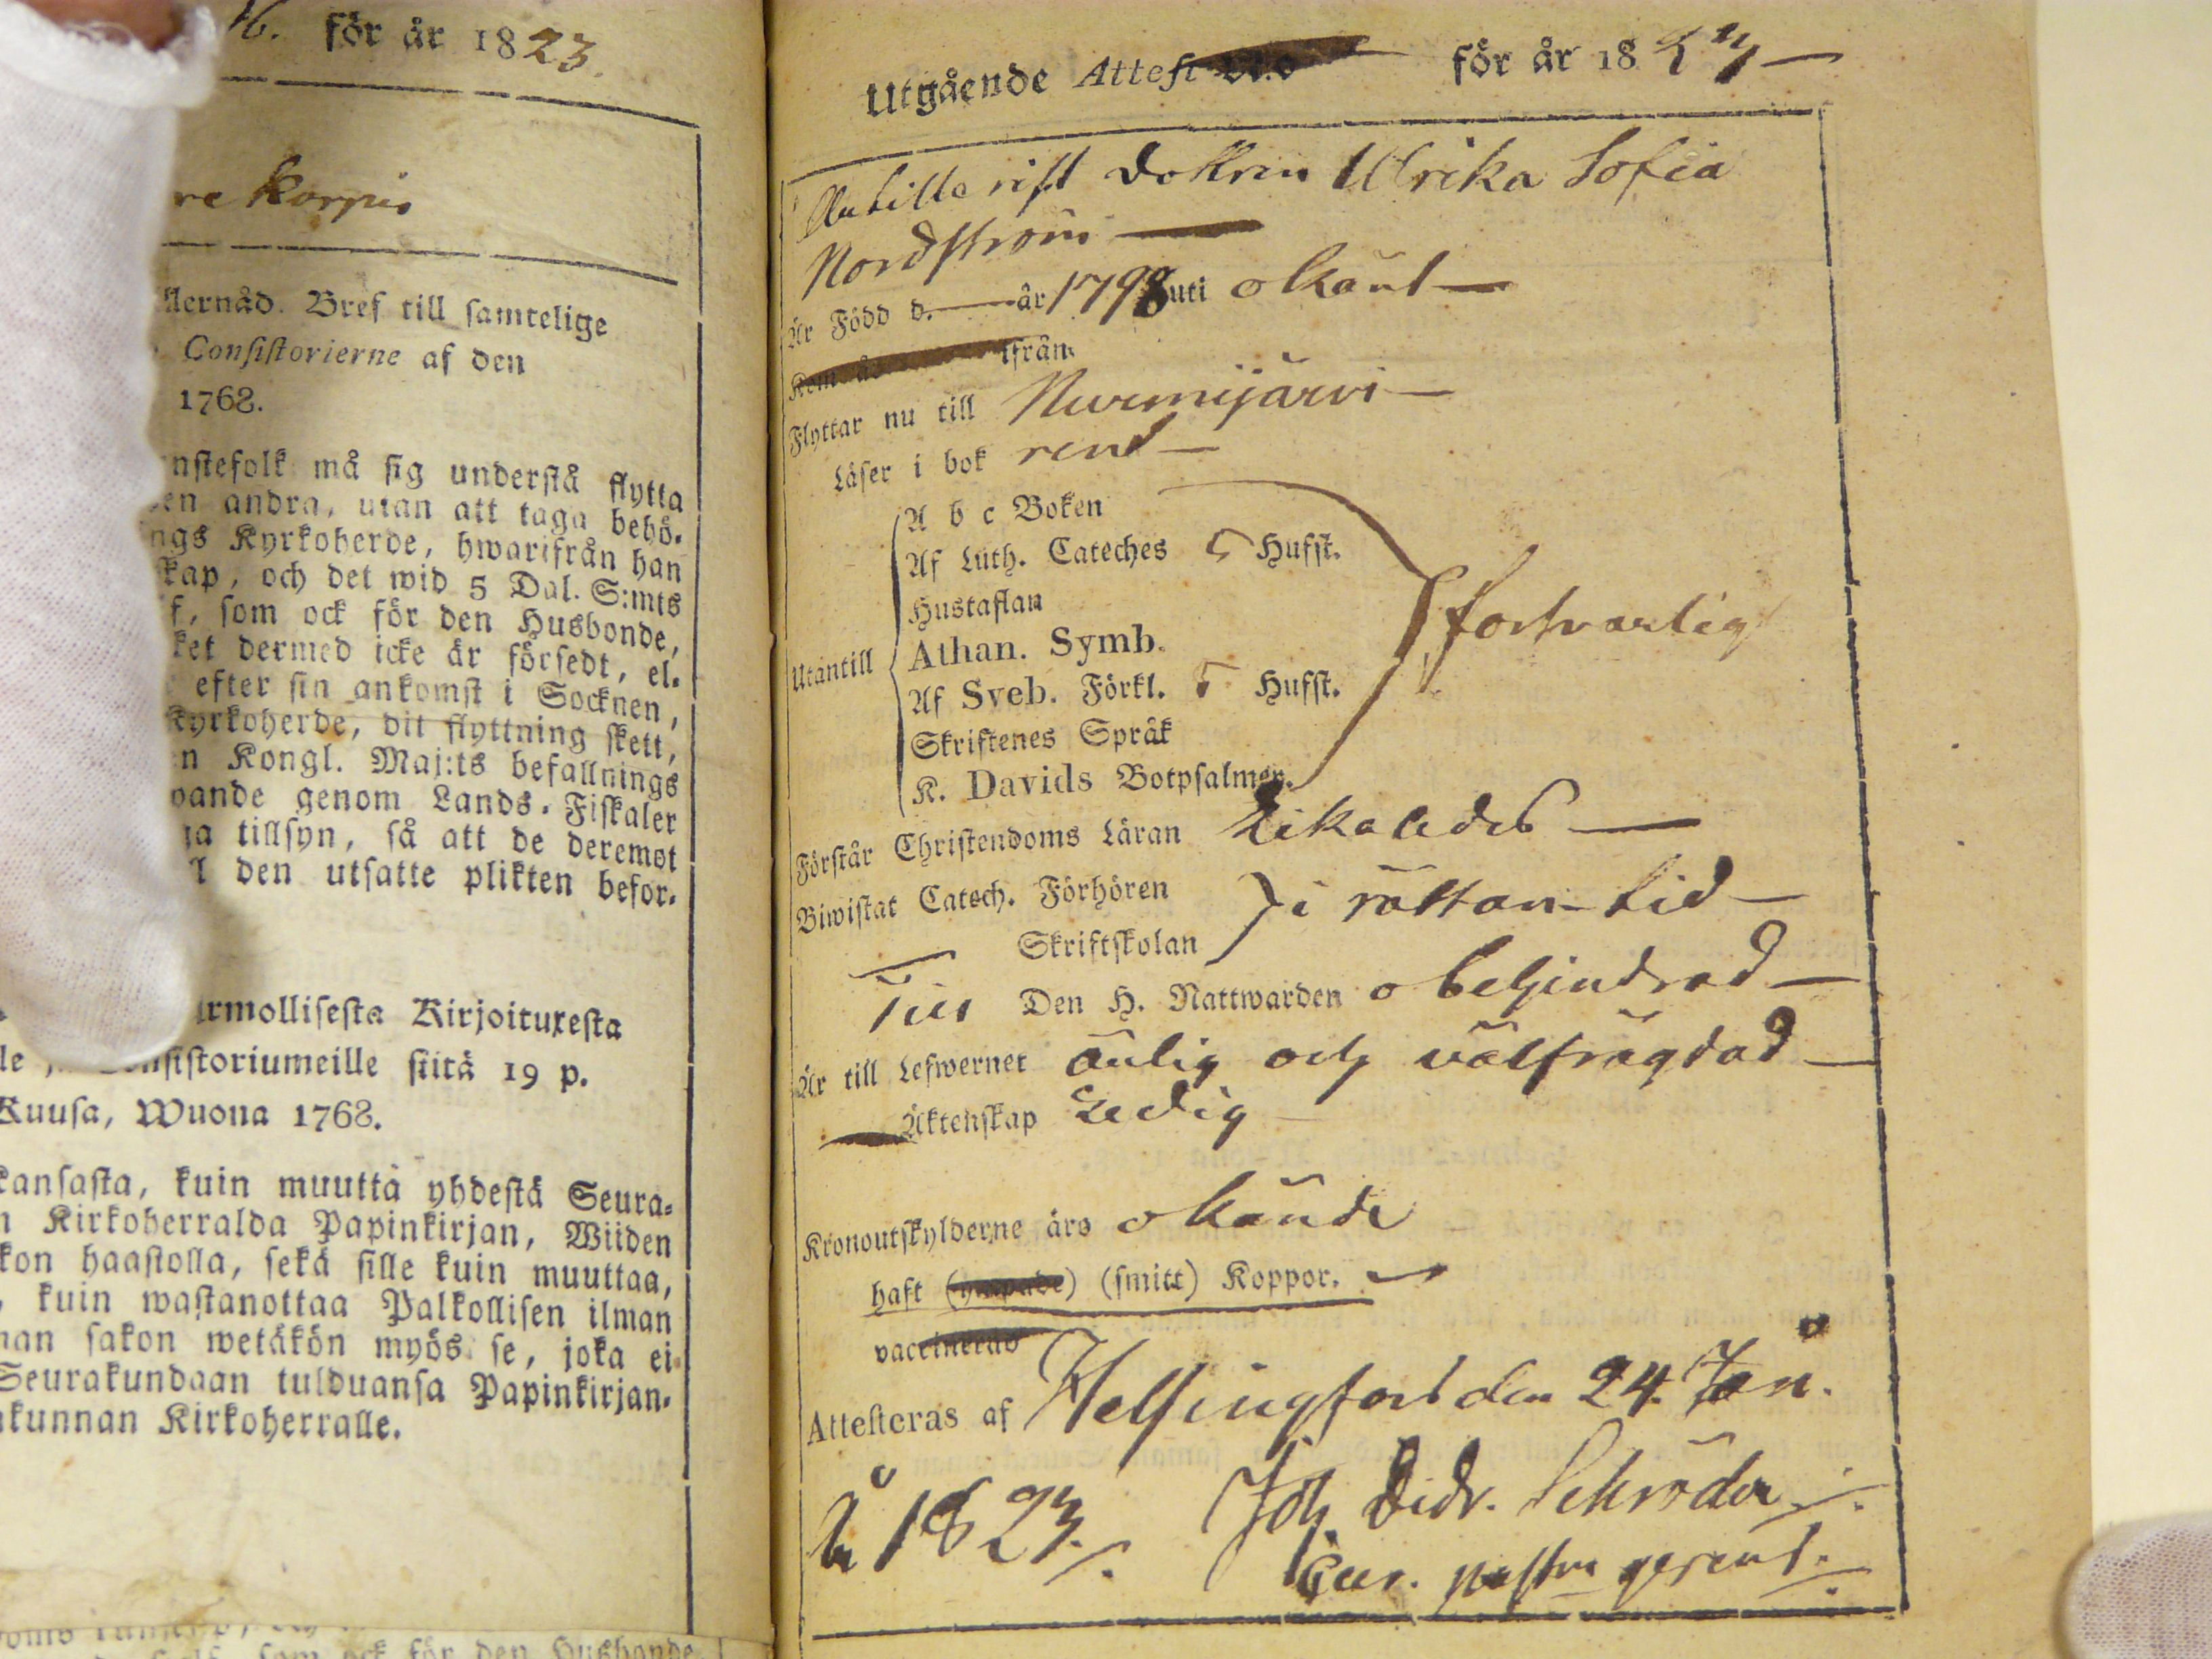 16. för år 1823.
re Korpis
Bref till samtelige
Consistorierne af den
1768.
må sig understå flytta
andra, utan att taga behö-
Kyrkoherde, hwarifrån han
och det wid 5 Dal. S:mts
som ock för den Husbonde,
dermed icke är försedt, el-
efter sin ankomst i Socknen,
Kyrkoherde, dit flyttning skett,
Kongl. Maj:ts befallnings
genom Lands-Fiskaler
tillsyn, så att de deremot
den utsatte plikten befor-
Kirjoituxesta
siitä 19 p.
Kuusa, Wuona 1768.
kuin muutta yhdestä Seura-
Kirkoherralda Papinkirjan, Wiiden
haastolla, sekä sille kuin muuttaa,
kuin wastanottaa Palkollisen ilman
sakon wetäkön myös se, joka ei
Seurakundaan tulduansa Papinkirjan-
Kirkoherralle.
som ock för den Husbonde
Utgående Attest No för år 18
dottren Ulrika Sofia
Nordström
Är Född d. år 1798 uti okänt
ifrån
Flyttar nu till Nurmijärvi
Läser i bok rent
A b c Boken
Af Luth. Cateches 5 Hufst.
Hustaflan
Athan. Symb.
Utantill
Af Sveb. Förkl. 5 Hufst.
försvarligt
Skriftenes Språk
K. Davids Botpsalmer.
Förstår Christendoms Läran Likaledes
Biwistat Catech. Förhören
Skriftskolan
i rättan tid
Den H. Nattwarden obehindrad
Är till Lefwernet ärlig och välfrägdad
Äktenskap Ledig
Kronoutskylderne äro okände
haft (smitt) Koppor.
vaccinerad
Attesteras af Helsingfors den 24. Jan.
år 1823. Joh. Didr. Schröder